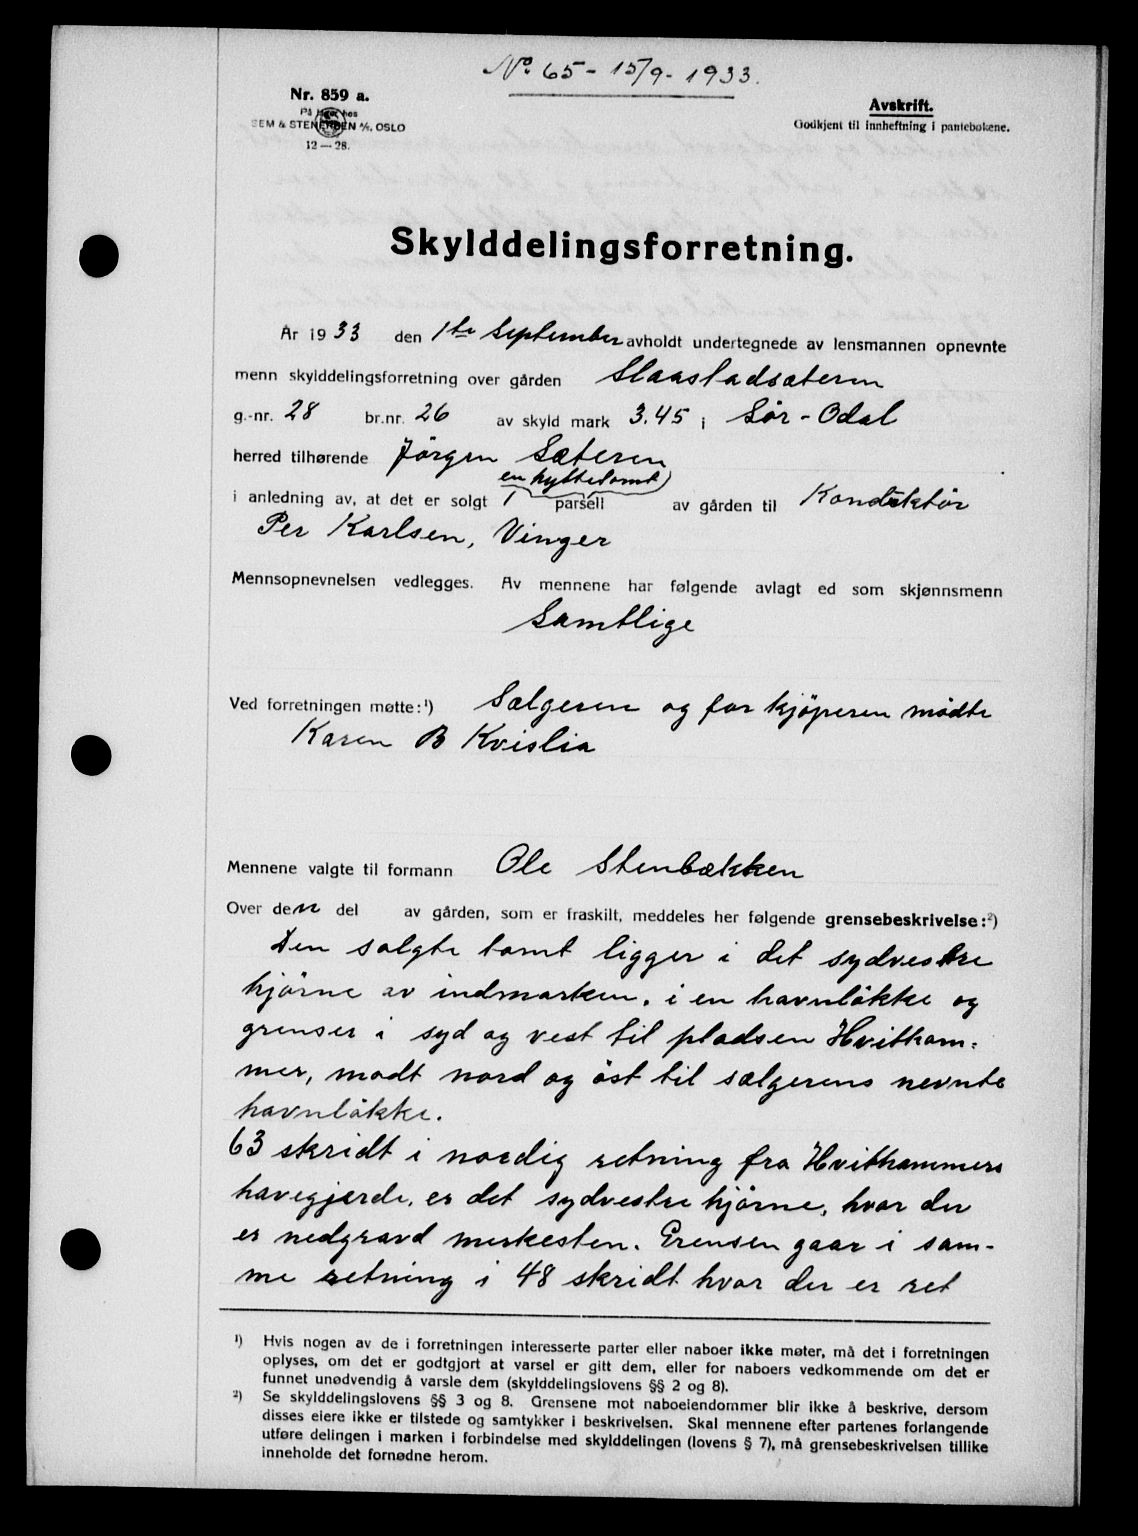 No. 65 - 15/9 - 1933.
Nr. 859 a.
På lager hos
SEM & STENERSEN A/S, OSLO
12 — 28.
Avskrift.
Godkjent til innheftning i pantebøkene.
Skylddelingsforretning.
År 1933 den 1ste September avholdt undertegnede av lensmannen opnevnte
menn skylddelingsforretning over gården Slaastadsæteren
g.-nr. 28 br.nr. 26 av skyld mark 3.45 i Sør-Odal
herred tilhørende Jörgen Sæteren
en hyttetomt
i anledning av, at det er solgt 1 parsell av gården til Konduktör
Per Karlsen, Vinger
Mennsopnevnelsen vedlegges. Av mennene har følgende avlagt ed som skjønnsmenn
Samtlige
Ved forretningen møtte:¹) Sælgeren og for kjöperen mödte
Karen B Kvislia
Mennene valgte til formann Ole Stenbækken
Over den del av gården, som er fraskilt, meddeles her følgende grensebeskrivelse:²)
Den solgte tomt ligger i det sydvestre
hjörne av indmarken, i en havnlökke og
grenser i syd og vest til pladsen Hvitham-
mer, modt nord og öst til sælgerens nevnte
havnlökke.
63 skridt i nordig retning fra Hvithammers
havegjerde, er det sydvestre hjörne, hvor der
er nedgravd merkesten. Grensen gaar i sam-
me retning i 48 skridt hvor der er ret
¹) Hvis nogen av de i forretningen interesserte parter eller naboer ikke møter, må det i forretningen
oplyses, om det er godtgjort at varsel er gitt dem, eller for naboers vedkommende om det er
funnet unødvendig å varsle dem (skylddelingslovens §§ 2 og 8).
²) Se skylddelingslovens §§ 3 og 8. Grensene mot naboeiendommer blir ikke å beskrive, dersom
disses eiere ikke er tilstede og samtykker i beskrivelsen. Skal mennene efter partenes forlangende
utføre delingen i marken i forbindelse med skylddelingen (lovens § 7), må grensebeskrivelsen tillike
inneholde det fornødne herom.